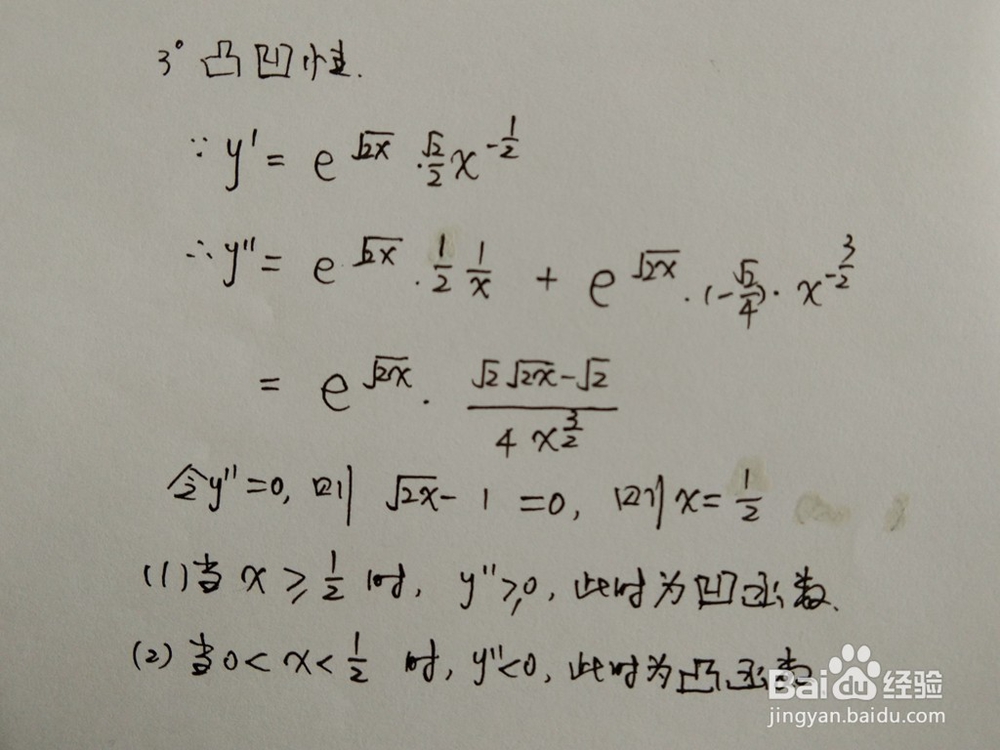 3° 凸凹性.
∵ y' = e^√2x · √2/2 x^-1/2
∴ y'' = e^√2x · 1/2 1/x + e^√2x · (-√2/4) · x^-3/2
= e^√2x · (√2 √2x - √2)/(4 x^3/2)
令y''=0, 则 √2x - 1 = 0, 则 x = 1/2
(1) 当 x ≥ 1/2 时, y'' ≥ 0, 此时为凹函数.
(2) 当 0 < x < 1/2 时, y'' < 0, 此时为凸函数
Baidu经验
jingyan.baidu.com